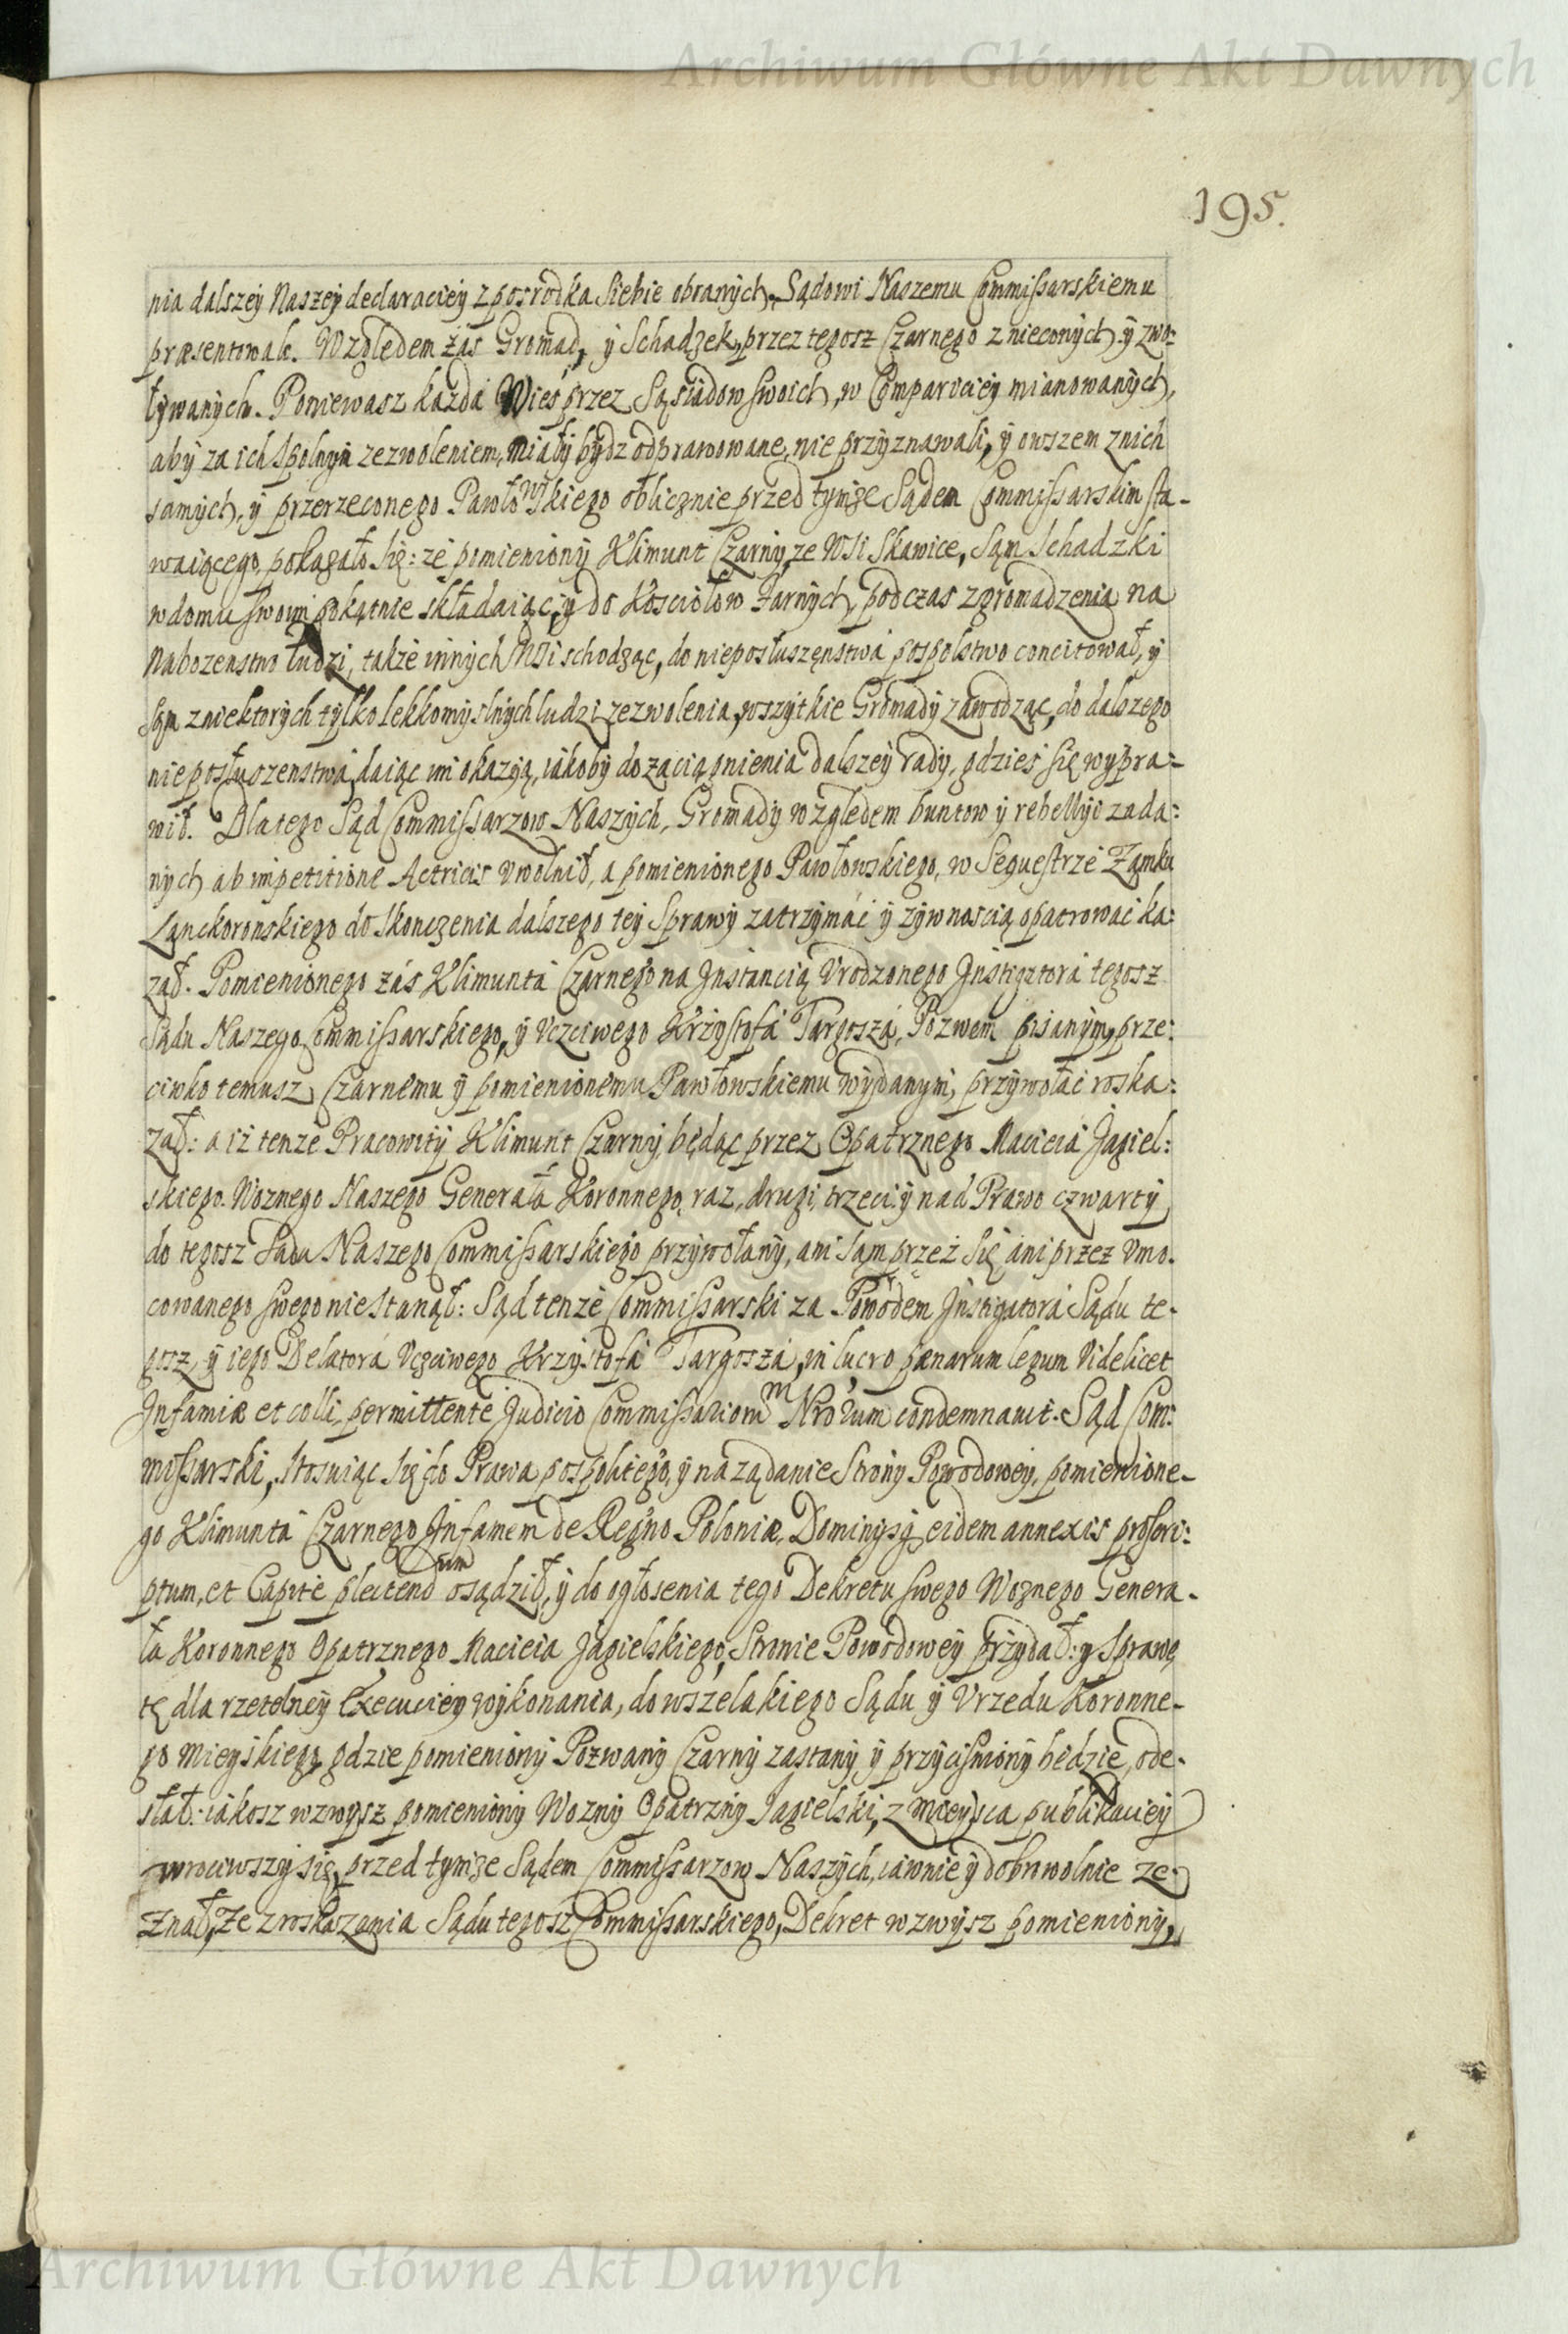 Archiwum Główne Akt Dawnych
195.
nia dalszey Naszey declaraciey z posrodka siebie obranych, Sądowi Naszemu Commissarskiemu
præsentowali. Względem zás Gromad, y Schadzek, przez tegosz Czarnego znieconych y zwo:
ływanych. Poniewasz kazda Wieś przez Sąsiadow swoich, w Compariciey mianowanych,
aby za ich spolnym zezwoleniem, miały bydz odprawowane, nie przyznawali, y owszem z nich
samych, y przerzeconego Pawłowskiego oblicznie przed tymze Sądem Commissarskim sta-
waiącego, pokazało się: ze pomieniony Klimunt Czarny, ze WSi Skawice, sąm Schadzki
w domu swoim pokątnie składaiąc, y do Kosciołow Farnych, podczas zgromadzenia na
Nabozenstwo ludzi, takze innych WSi schodząc, do nieposłuszęnstwa pospolstwo concitował, y
sąm z niektorych tylko lekkomyslnych ludzi zezwolenia, wszytkie Gromady zawodząc, do dalszego
nieposłuszenstwa, daiąc im okazyą, iákoby do zaciągnienia dalszey rady, gdzieś się wypra:
wił. Dlatego Sąd Commissarzow Naszych, Gromady względem buntow y rebelliyi zada:
nych ab impetitione Actricis uwolnił, a pomienionego Pawłowskiego, w Sequestrze Ząmku
Lanckoronskiego do skonczenia dalszego tey Sprawy zatrzymáć y zywnoscią opatrowáć ka:
zał. Pomienionego zás Klimuntá Czarnego na Instancią Urodzonego Instigatorá tegosz
Sądu Naszego Commissarskiego, y Uczciwego Krzysztofá Targoszá, Pozwem pisanym, prze:
ciwko temusz Czarnemu y pomienionemu Pawłowskiemu wydanym, przywołać roska:
zał: a iż tenze Pracowity Klimunt Czarny, będąc przez Opatrznego Macieiá Jagiel:
skiego Woznego Naszego Generałá Koronnego, raz, drugi, trzeci y nad Prawo czwarty
do tegosz Sądu Naszego Commissarskiego przywołany, ani sąm przez się ani przez umo.
cowanego swego nie stanął: Sąd tenze Commissarski za Powodem Instigatorá Sądu te-
gosz, y iego Delatorá Uczciwego Krzystofá Targoszá, in lucro pænarum legum Videlicet
Infamiæ et colli, permittente Judicio Commissariorum Nrorum condemnauit. Sąd Com:
missarski, stosuiąc się do Prawa pospolitego, y na ządanie Strony Powodowey, pomienione-
go Klimuntá Czarnego Infamem de Regno Poloniæ, Dominysq eidem annexis proscri:
ptum, et Capite plectendum osądził, y do ogłosenia tego Dekretu swego Woznego Genera-
łá Koronnego Opatrznego Macieia Jagielskiego, Stronie Powodowey przydał: y Sprawę
tę dla rzetelney Execuciey wykonania, do wszelakiego Sądu y Urzedu Koronne-
go Mieyskiego, gdzie pomieniony Pozwany Czarny zastany y przycisniony bedzie, ode-
słał: iákosz wzwysz pomieniony Wozny Opatrzny Jagielski, z mieysca publikaciey
wrociwszy się, przed tymze Sądem Commissarzow Naszych, iawnie y dobrowolnie ze-
znał, ze z roskazania Sądu tegosz Commissarskiego, Dekret wzwysz pomieniony,
Archiwum Główne Akt Dawnych